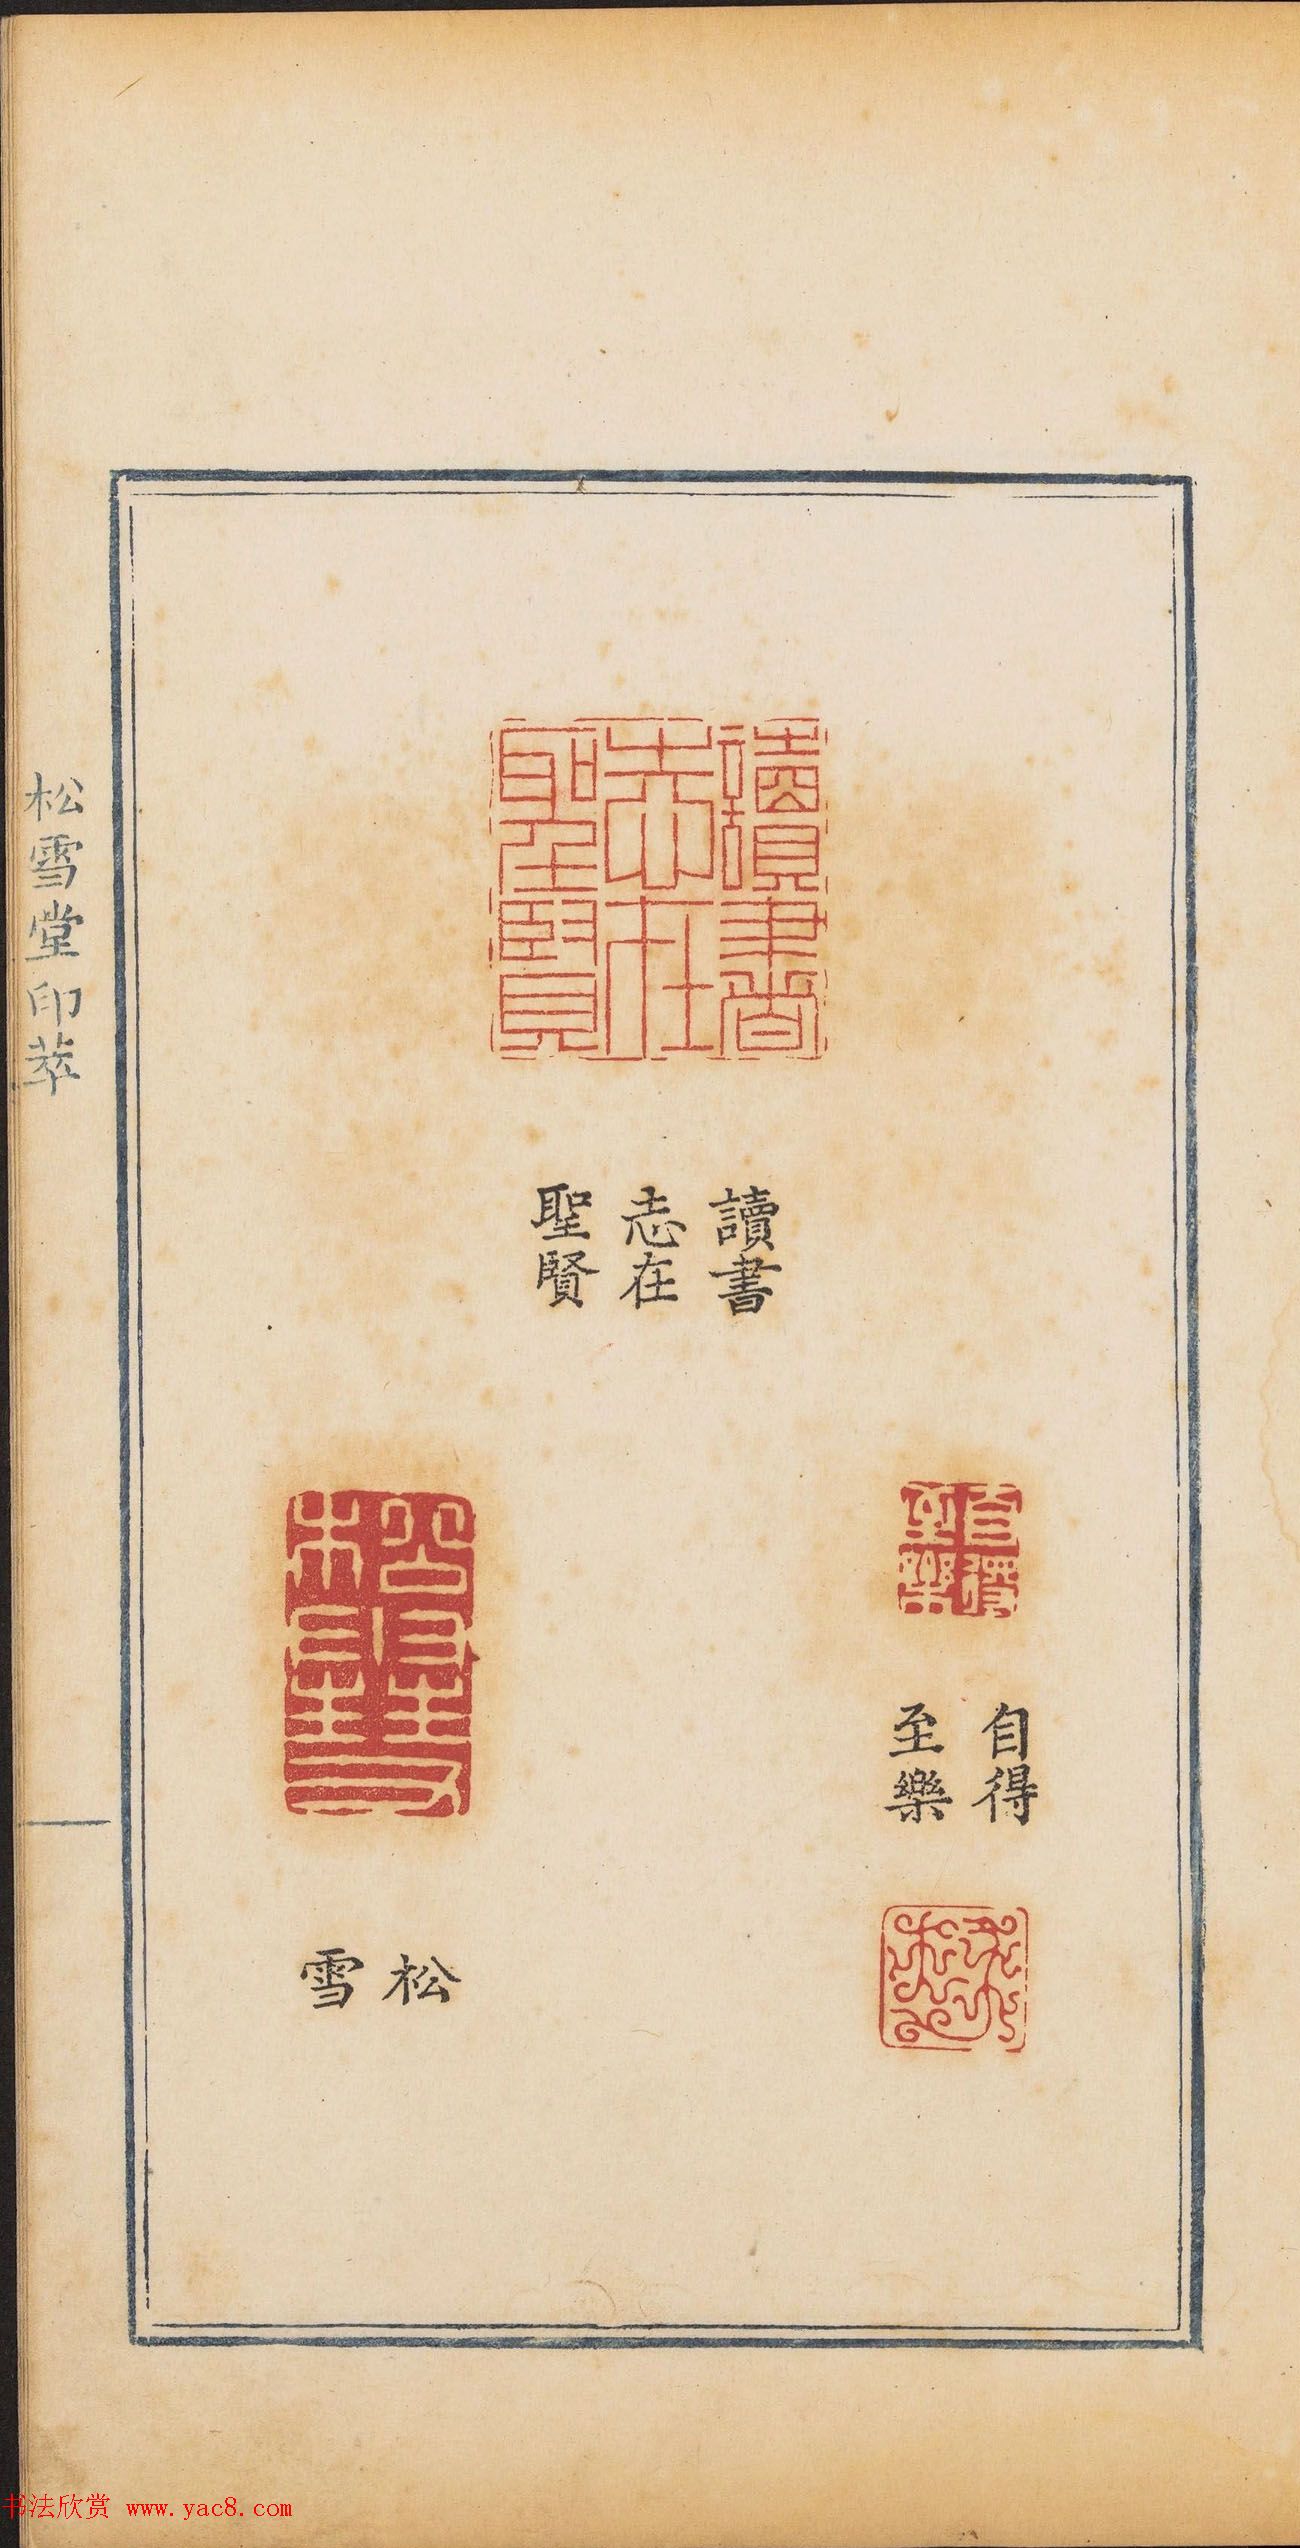 讀書
志在
聖賢
讀書
志在
聖賢
自得
至樂
自得
至樂
松
雪
松雪堂印萃
书法欣赏 www.yac8.com